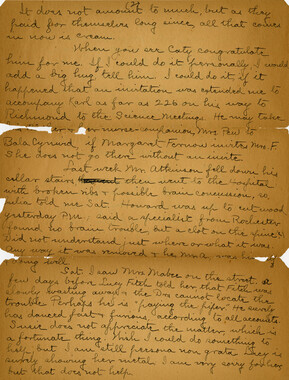 It does not amount to much, but as they
paid for themselves long since, all that comes
in now is cream.
When you see Caty congratulate
him for me. If I could do it personally I would
add a big hug, tell him I could do it if it
happened that an invitation was extended me to
accompany Karl as far as 226 on his way to
Richmond to the Science Meeting. He may take
Mrs Few to
Bala Cynwyd if Margaret Fernow invites Mrs F
She does not go there without an invite.
Last week Mr. Atkinson fell down his
cellar stairs then went to the hospital
with broken ribs & possible brain concussion, so
Julia told me Sat. Howard was up to cut wood
yesterday P.M. said a specialist from Rochester
found no brain trouble, but a clot on the
did not understand just where or what it was
any way it was removed & he Mr A. was
doing well.
Sat. I saw Mrs Mabee on the street. A
few days before Lucy Fitch told her that Fitch was
slowly eating away & the Drs cannot locate the
trouble. Perhaps he is "paying the piper". He surely
has danced fast & furious according to all accounts.
Susie does not appreciate the matter which is
a fortunate thing. Wish I could do something to
help but I am still persona non grata. Lucy is
surely showing her metal. I am very sorry for her
but that does not help.